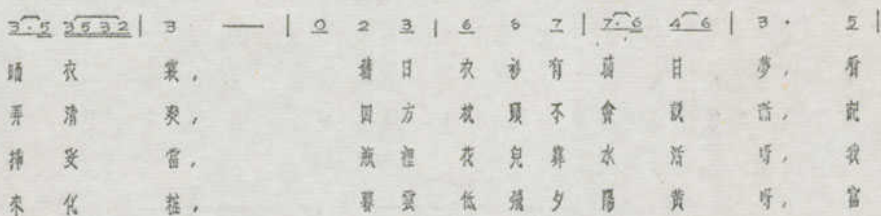 3·5 3532 | 3 — | 0 2 3 | 6 6 7 | 7·6 4 6 | 3· 5 |
晒衣裳, 舊日衣衫有舊日夢, 看
弄清爽, 四方枕頭不會說話, 說
插妥當, 瓶裡花兒靠水活呀, 我
來化粧, 暮雲低飛夕陽黃呀, 當